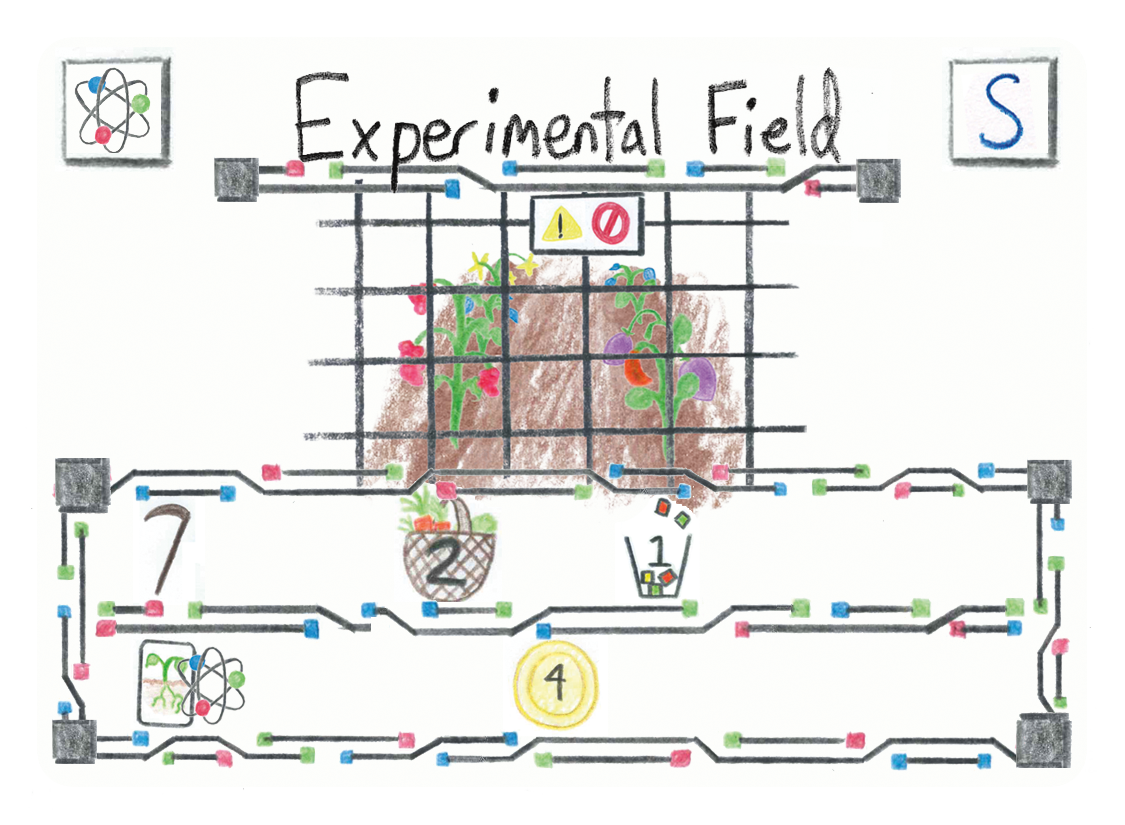 Experimental Field
S
!
2
1
4